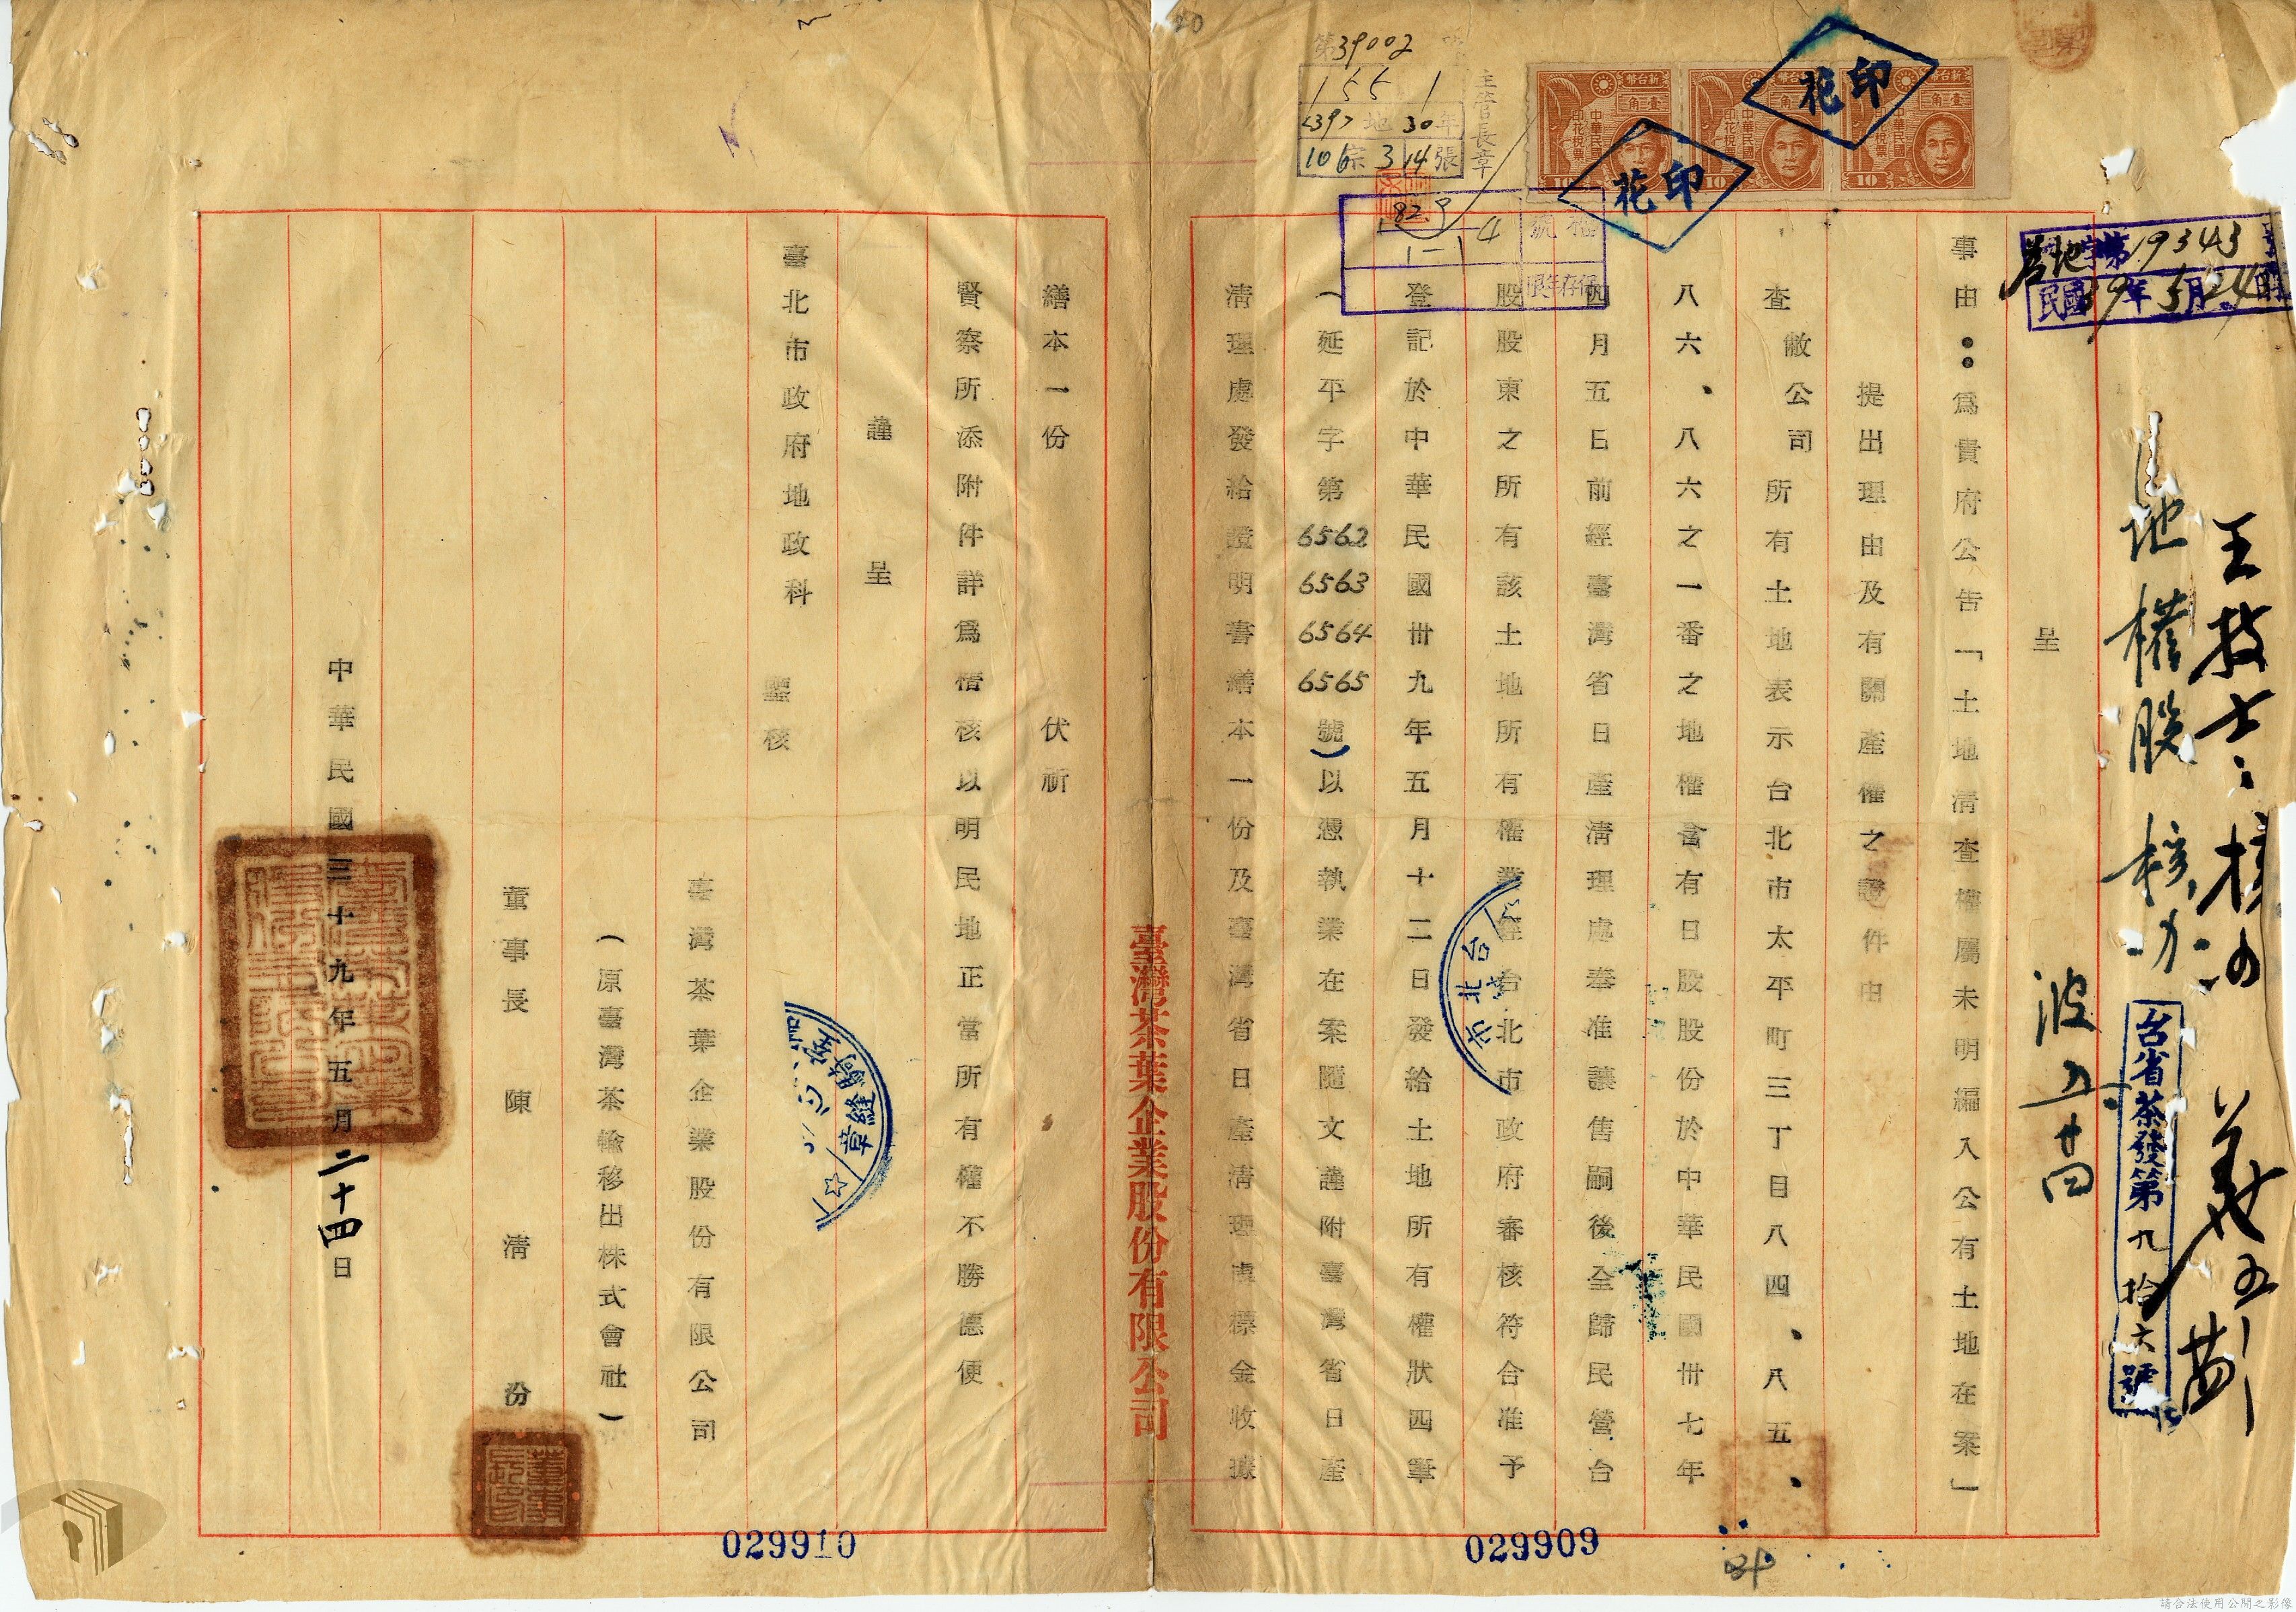 呈
事由：為貴府公告「土地清查權屬未明編入公有土地在案」
提出理由及有關產權之證件由
查敝公司所有土地表示台北市太平町三丁目八四、八五、
八六、八六之一番之地權含有日股股份於中華民國卅七年
四月五日前經臺灣省日產清理處奉准讓售嗣後全歸民營台
股股東之所有該土地所有權業經台北市政府審核符合准予
登記於中華民國卅九年五月十二日發給土地所有權狀四筆
（延平字第6562 6563 6564 6565號）以憑執業在案隨文謹附臺灣省日產
清理處發給證明書繕本一份及臺灣省日產清理處標金收據
臺灣茶葉企業股份有限公司
繕本一份 伏祈
賢察所添附件詳為楷核以明民地正當所有權不勝德便
謹呈
臺北市政府地政科
鑒核
臺灣茶葉企業股份有限公司
（原臺灣茶輸移出株式會社）
董事長 陳清汾
中華民國三十九年五月二十四日
台省茶發第九拾六號
地字第19343
民國39年5月24
王技士
地權股 核办
波 五 廿四
印花
印花
新台幣
壹角
中華民國印花稅票
10
新台幣
壹角
中華民國印花稅票
10
新台幣
壹角
中華民國印花稅票
10
第39002
155 1
地 30年
106宗 3 14張
主管長章
號
保存年限
82
1-1
4
台北市
騎縫章
029909
029910
20
請合法使用公開之影像